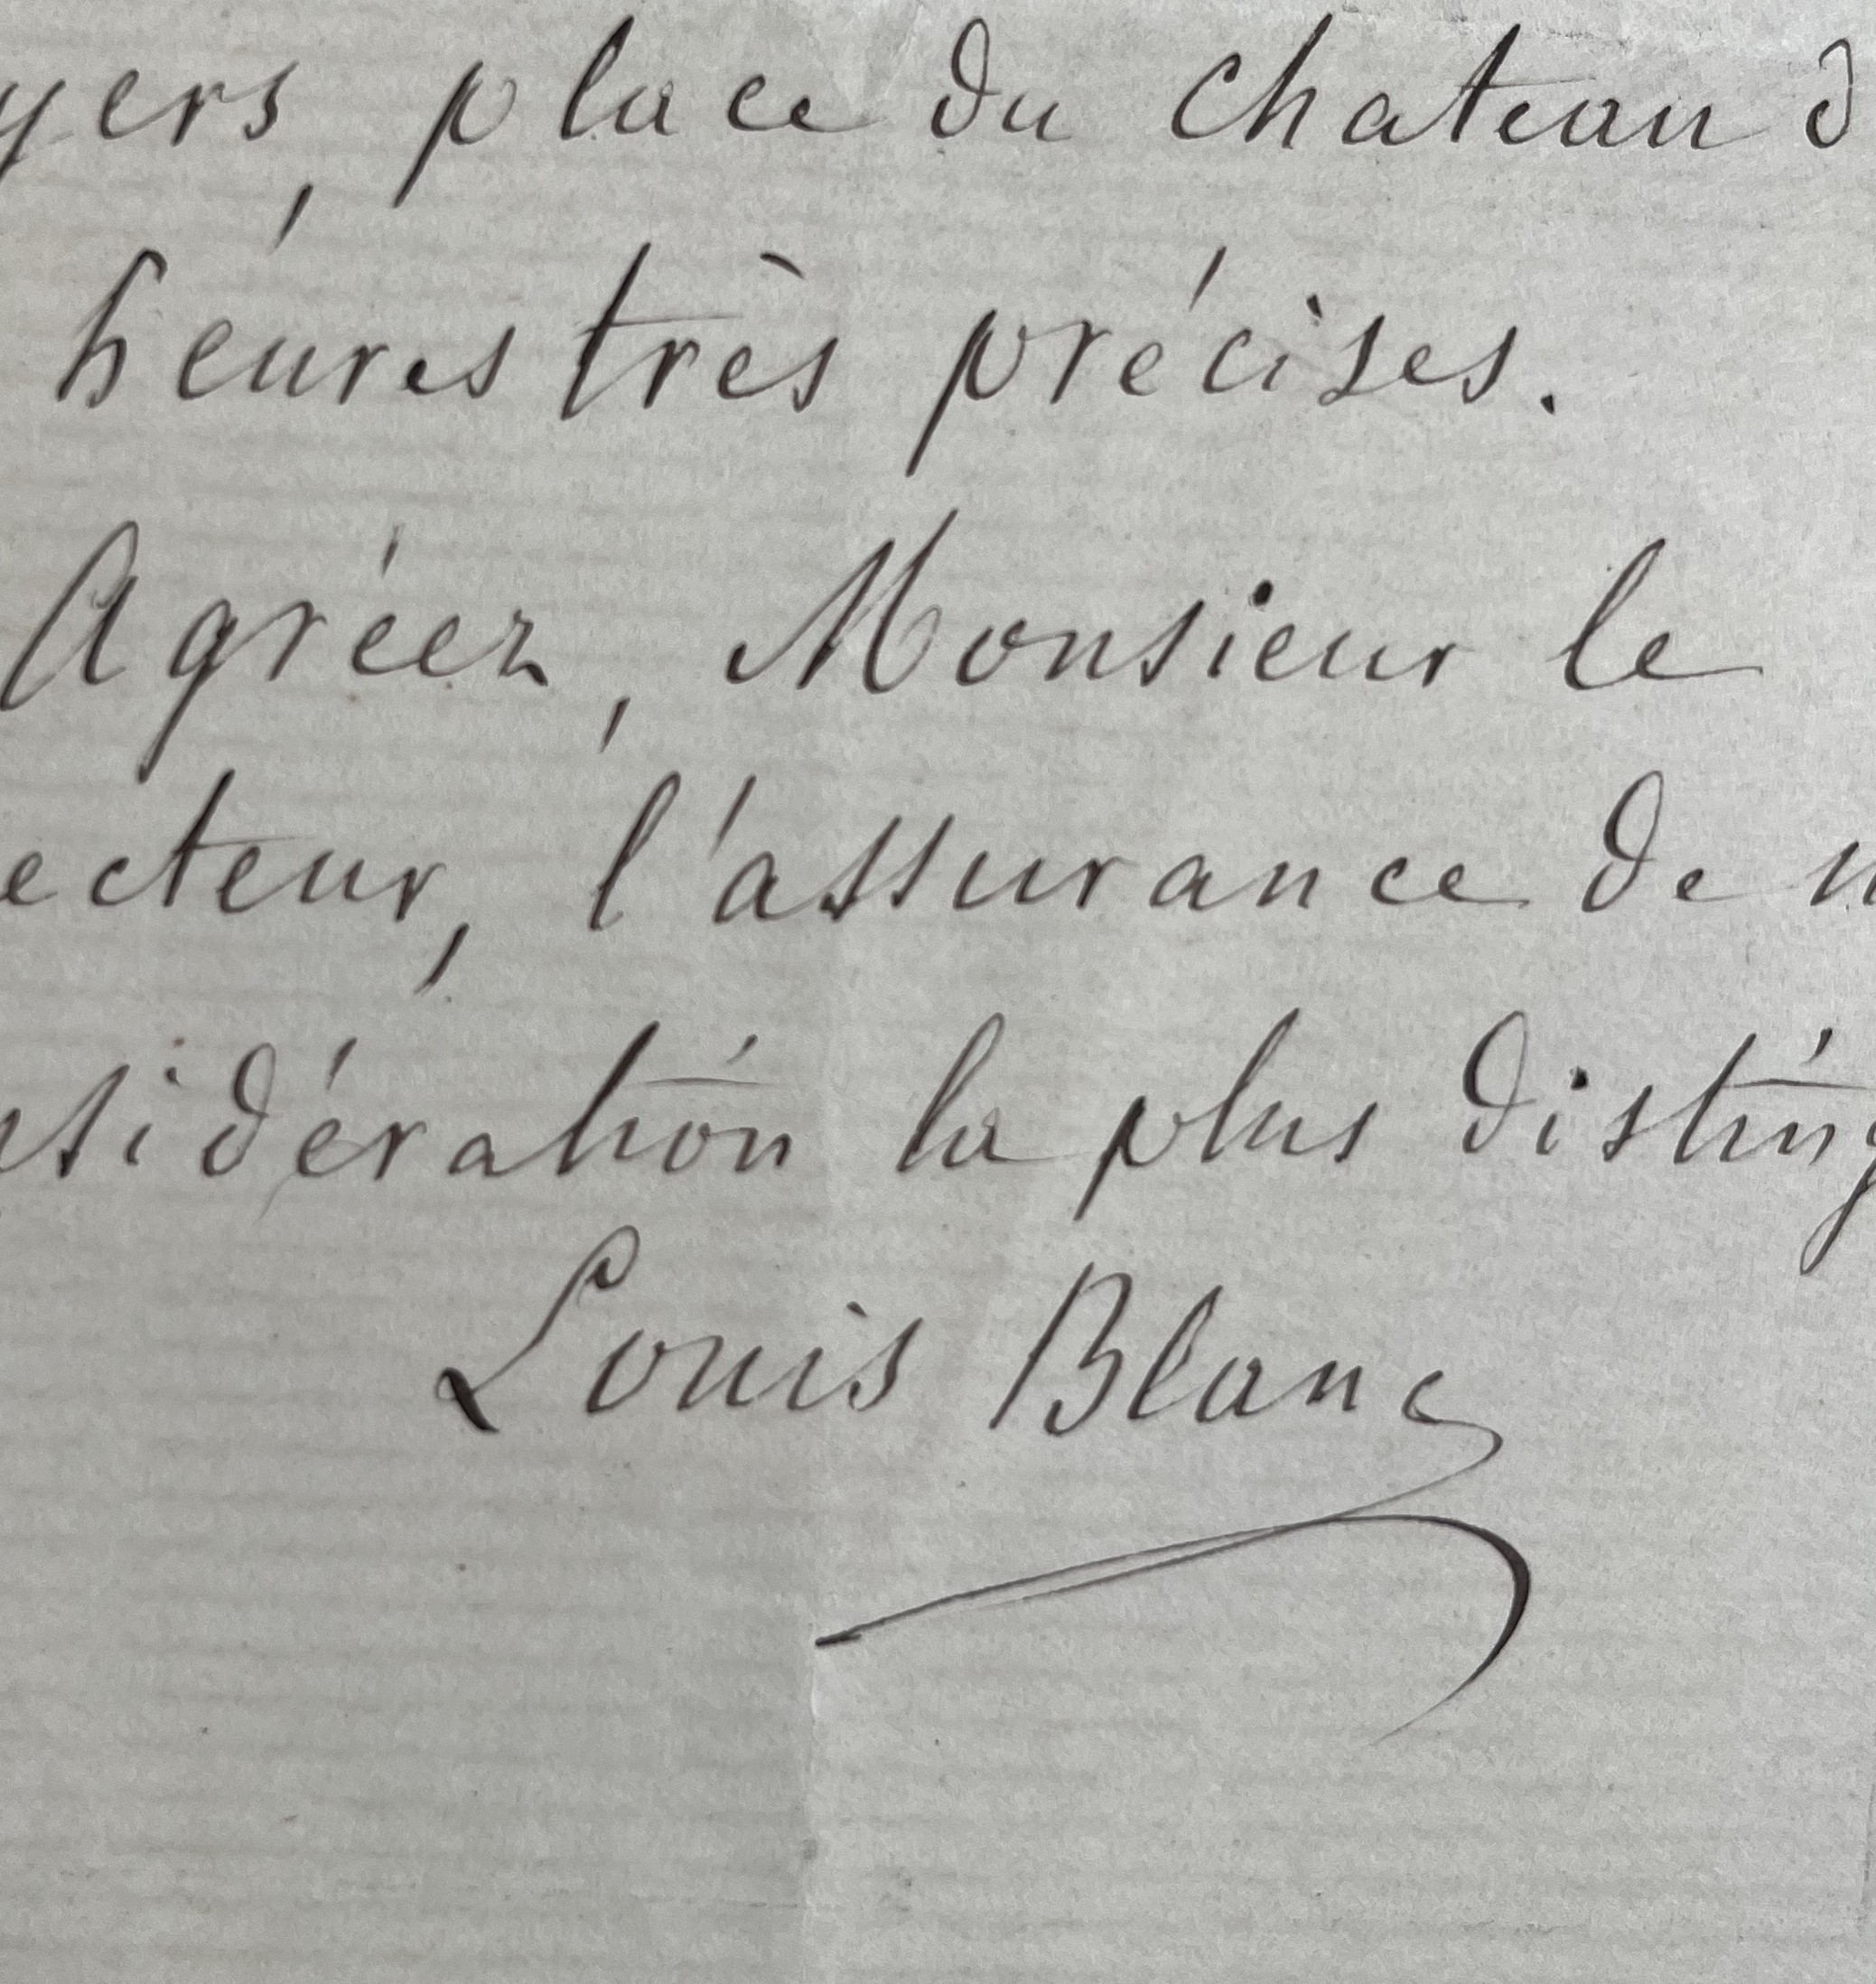 yers, place du chateau d
heures très précises.
Agréez, Monsieur le
ecteur, l'assurance de m
nsidération la plus disting
Louis Blanc